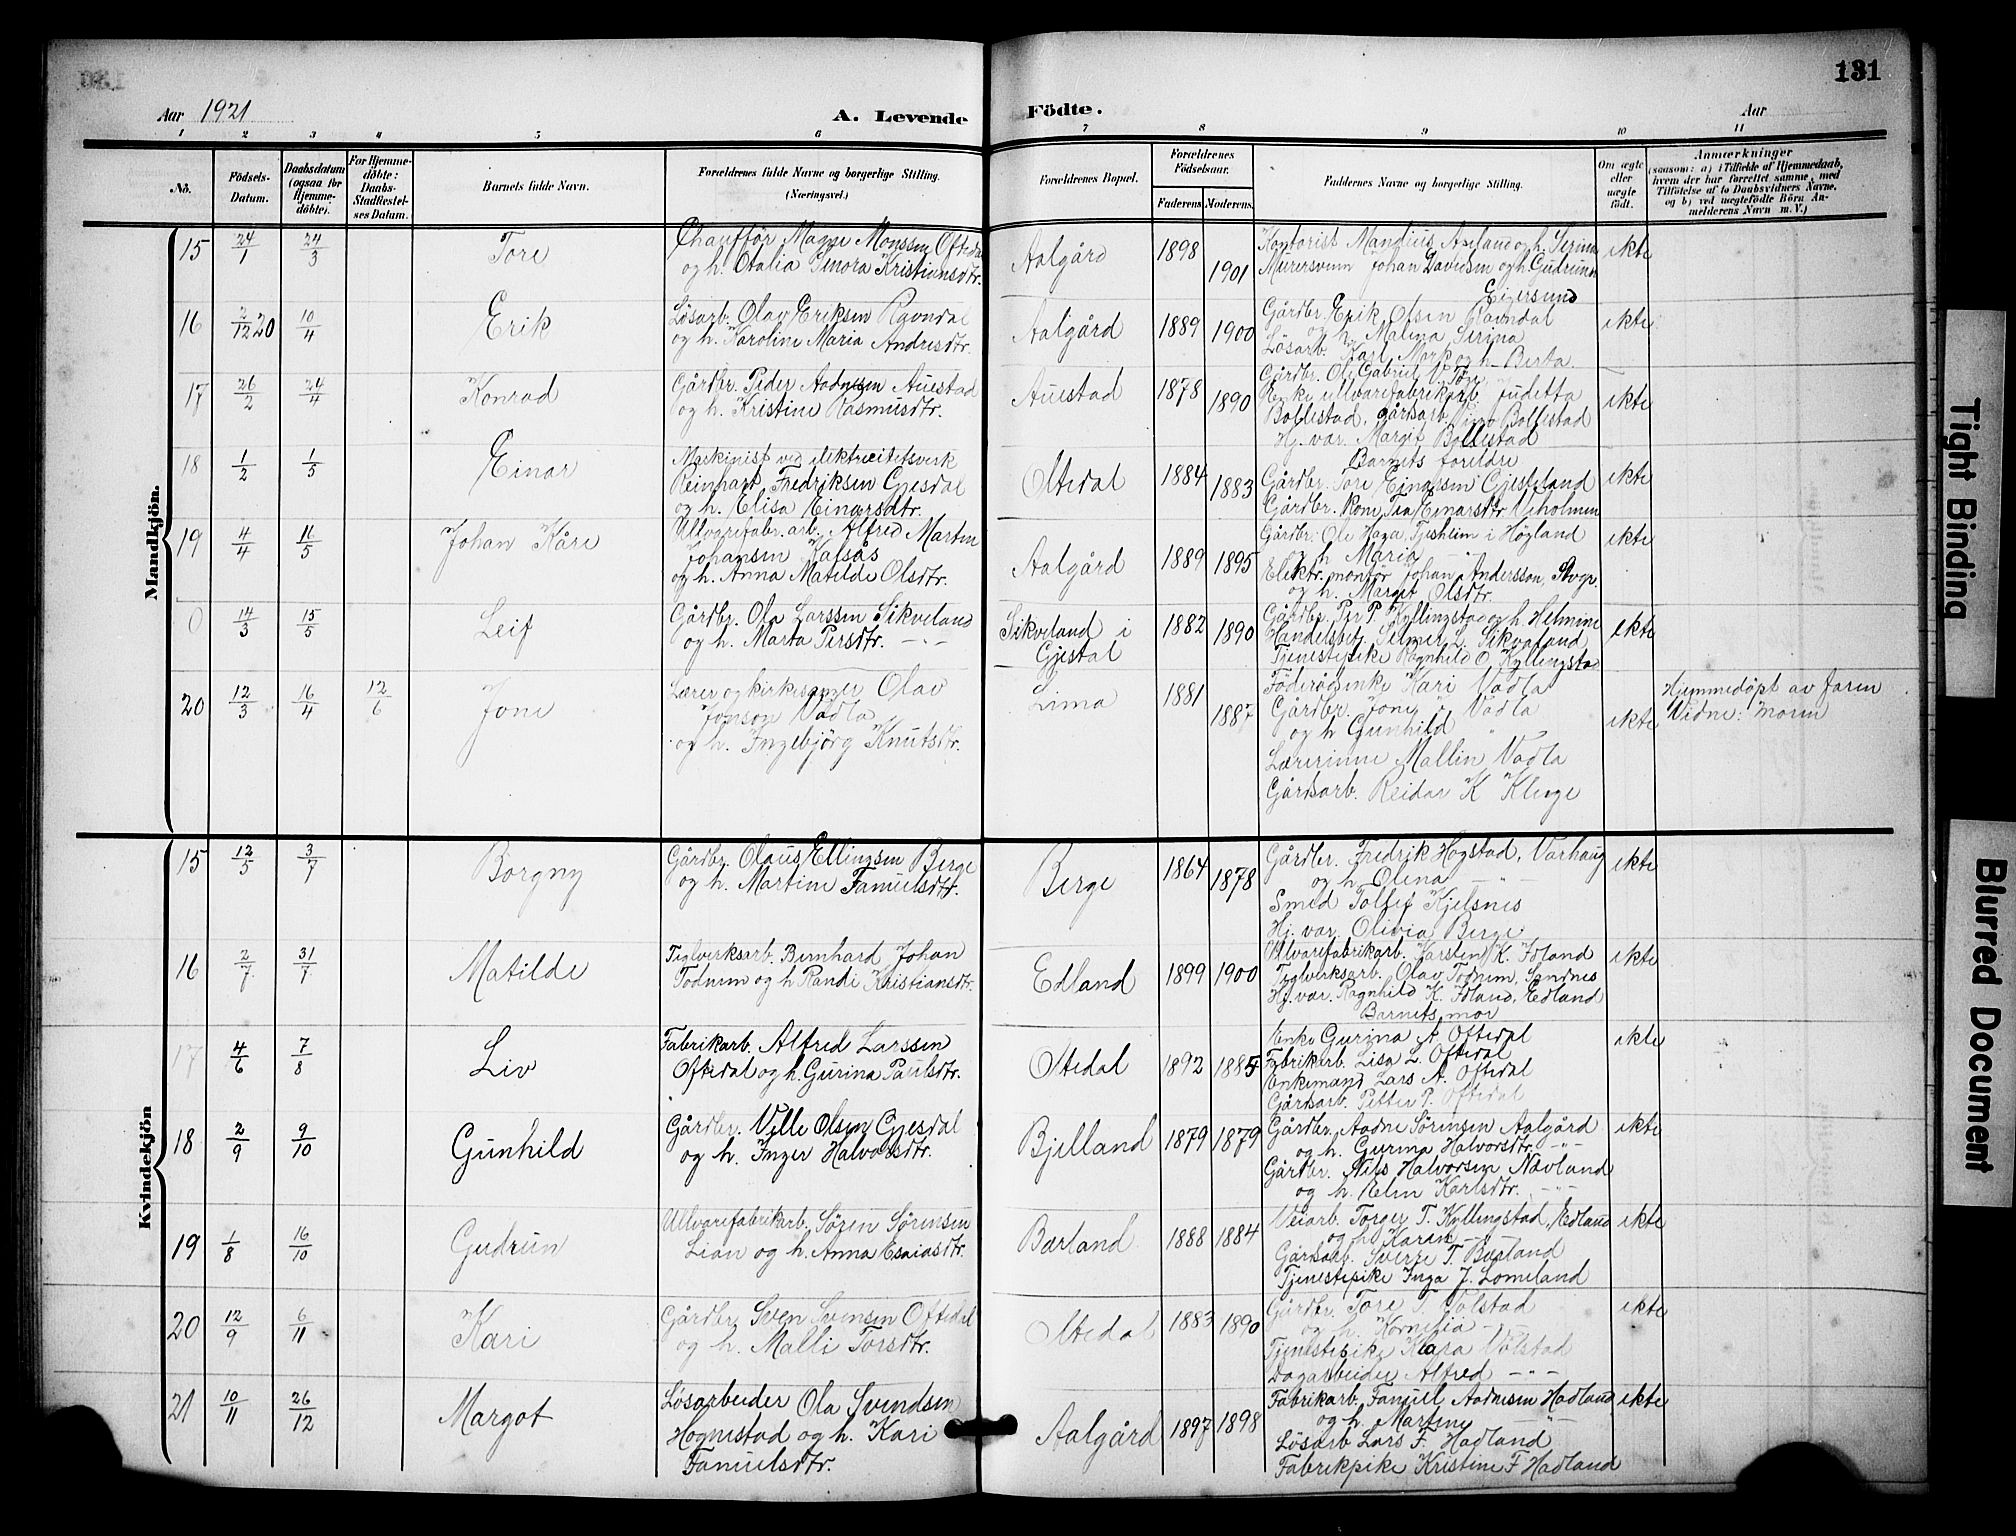 131
Aar 1921
A. Levende
Födte.
Aar
1 2 3 4 5 6 7 8 9 10 11
No.
Födsels-
Datum.
Daabsdatum
(ogsaa for
Hjemme-
döbte).
For Hjemme-
döbte:
Daabs-
Stadfæstel-
ses Datum.
Barnets fulde Navn.
Forældrenes fulde Navne og borgerlige Stilling.
(Næringsvei.)
Forældrenes Bopæl.
Forældrenes
Födselsaar.
Faderens Moderens.
Faddernes Navne og borgerlige Stilling.
Om ægte
eller
uægte
født.
Anmærkninger
(saasom: a) i Tilfælde af Hjemmedaab,
hvem der har forrettet samme, med
Tilföielse af to Daabsvidners Navne,
og b) ved uægtefødte Börn An-
melderens Navn m. V.)
Mandkjön.
15 24/1 24/3 Tore
Chaufför Magne Monssen Oftedal
og h. Otalia Genora Kristiansdtr.
Aalgård 1898 1901
Kontorist Mandius Aseland og h. Serina
Murersvenn Johan Davidsen og h. Gudrun
Eigersund
ekte
16 2/12 20 10/4 Erik
Løsarb. Olav Eriksen Ravndal
og h. Karoline Maria Andresdtr.
Aalgård 1889 1900
Gårdbr. Erik Olsen Ravndal
og h. Malena Serina
Løsarb. Karl Mork og h. Berta
ekte
17 26/2 24/4 Konrad
Gårdbr. Peder Aadnesen Auestad
og h. Kristine Rasmusdtr.
Auestad 1878 1890
Gårdbr. Ole Gabriel V. Tør
Enke ullvarefabrikarb. Judetta
Bollestad, gårdsarb. Vigo Bollestad
Hj. vær. Margit Bollestad
ekte
18 1/2 1/5 Einar
Maskinist ved elektricitetsverk
Reinhart Fredriksen Gjesdal
og h. Elisa Einarsdtr.
Oltedal 1884 1883
Barnets foreldre
Gårdbr. Tore Einarsen Gjesteland
Gårdbr. kone Tea Einarsdtr Veholmen
ekte
19 4/4 16/5 Johan Kåre
Ullvarefabr. arb. Alfred Martin
Johansen Kalsås
og h. Anna Matilde Olsdtr.
Aalgård 1889 1895
Gårdbr. Ole Haga, Tjesheim i Høgland
og h. Maria
Elektr. montør Johan Andersson, Stvgr.
og h. Margit Olsdtr.
ekte
0 14/3 15/5 Leif
Gårdbr. Ola Larssen Sikveland
og h. Marta Persdtr. —"—
Sikveland i
Gjestal
1882 1890
Gårdbr. Per P. Kyllingstad og h. Helmine
Handelsbetj. Selmer L. Sikveland
Tjenestepike Ragnhild O. Kyllingstad
ekte
20 12/3 16/4 12/6 Jone
Lærer og kirkesanger Olav
Jonson Vadla
og h. Ingebjörg Knutsdtr.
Lima 1881 1887
Föderådsenke Kari Vadla
Gårdbr. Jone Vadla
og h. Gunhild "
Lærerinne Mallin Vadla
Gårdsarb. Reidar K Kluge
ekte
Hjemmedøpt av faren
Vidne: moren
Kvindekjön
15 12/5 3/7 Borgny
Gårdbr. Olaus Ellingsen Berge
og h. Martine Famuelsdtr.
Berge 1864 1878
Gårdbr. Fredrik Høgstad, Varhaug
og h. Olena —"—
Smed Tollef Kjelsnes
Hj. vær. Olivia Berge
ekte
16 2/7 31/7 Matilde
Teglverksarb. Bernhard Johan
Todnem og h. Randi Kristiansdtr.
Edland 1899 1900
Ullvarefabrikarb. Karsten K. Idland
Teglverksarb. Olav Todnem, Sandnes
Hj. vær. Ragnhild K. Idland, Edland
Barnets mor
ekte
17 4/6 7/8 Liv
Fabrikarb. Alfred Larssen
Oftedal og h. Gurina Paulsdtr.
Oltedal 1892 1885
Enke Gurina A. Oftedal
Fabrikarb. Lisa L. Oftedal
Enkemand Lars A. Oftedal
Gårdsarb. Petter P. Oftedal
ekte
18 2/9 9/10 Gunhild
Gårdbr. Ville Olsen Gjesdal
og h. Inger Halvorsdtr.
Bjelland 1879 1879
Gårdbr. Aadne Sörensen Aalgård
og h. Gurina Halvorsdtr. —"—
Gårdbr. Nils Halvorsen Nævland
og h. Elen Karlsdtr. —"—
ekte
19 1/8 16/10 Gudrun
Ullvarefabrikarb. Sören Sörensen
Lian og h. Anna Esaiasdtr.
Bærland 1888 1884
Veiarb. Torger T. Kyllingstad, Edland
og h. Karen —"—
Gårdsarb. Sverre T. Bærland
Tjenestepike Inga J. Lomeland
ekte
20 12/9 6/11 Kari
Gårdbr. Sven Svensen Oftedal
og h. Malli Torsdtr.
Oltedal 1883 1890
Gårdbr. Tore T. Volstad
og h. Kornelia —
Tjenestepike Klara Volstad
Dagarbeider Alfred —"—
ekte
21 10/11 26/12 Margot
Løsarbeider Ola Svendsen
Hognestad og h. Kari
Famuelsdtr.
Aalgård 1897 1898
Fabrikarb. Famuel Aadnesen Hadland
og h. Martine —"—
Løsarb Lars F. Hadland
Fabrikpike Kristine F Hadland
ekte
Tight Binding
Blurred Document